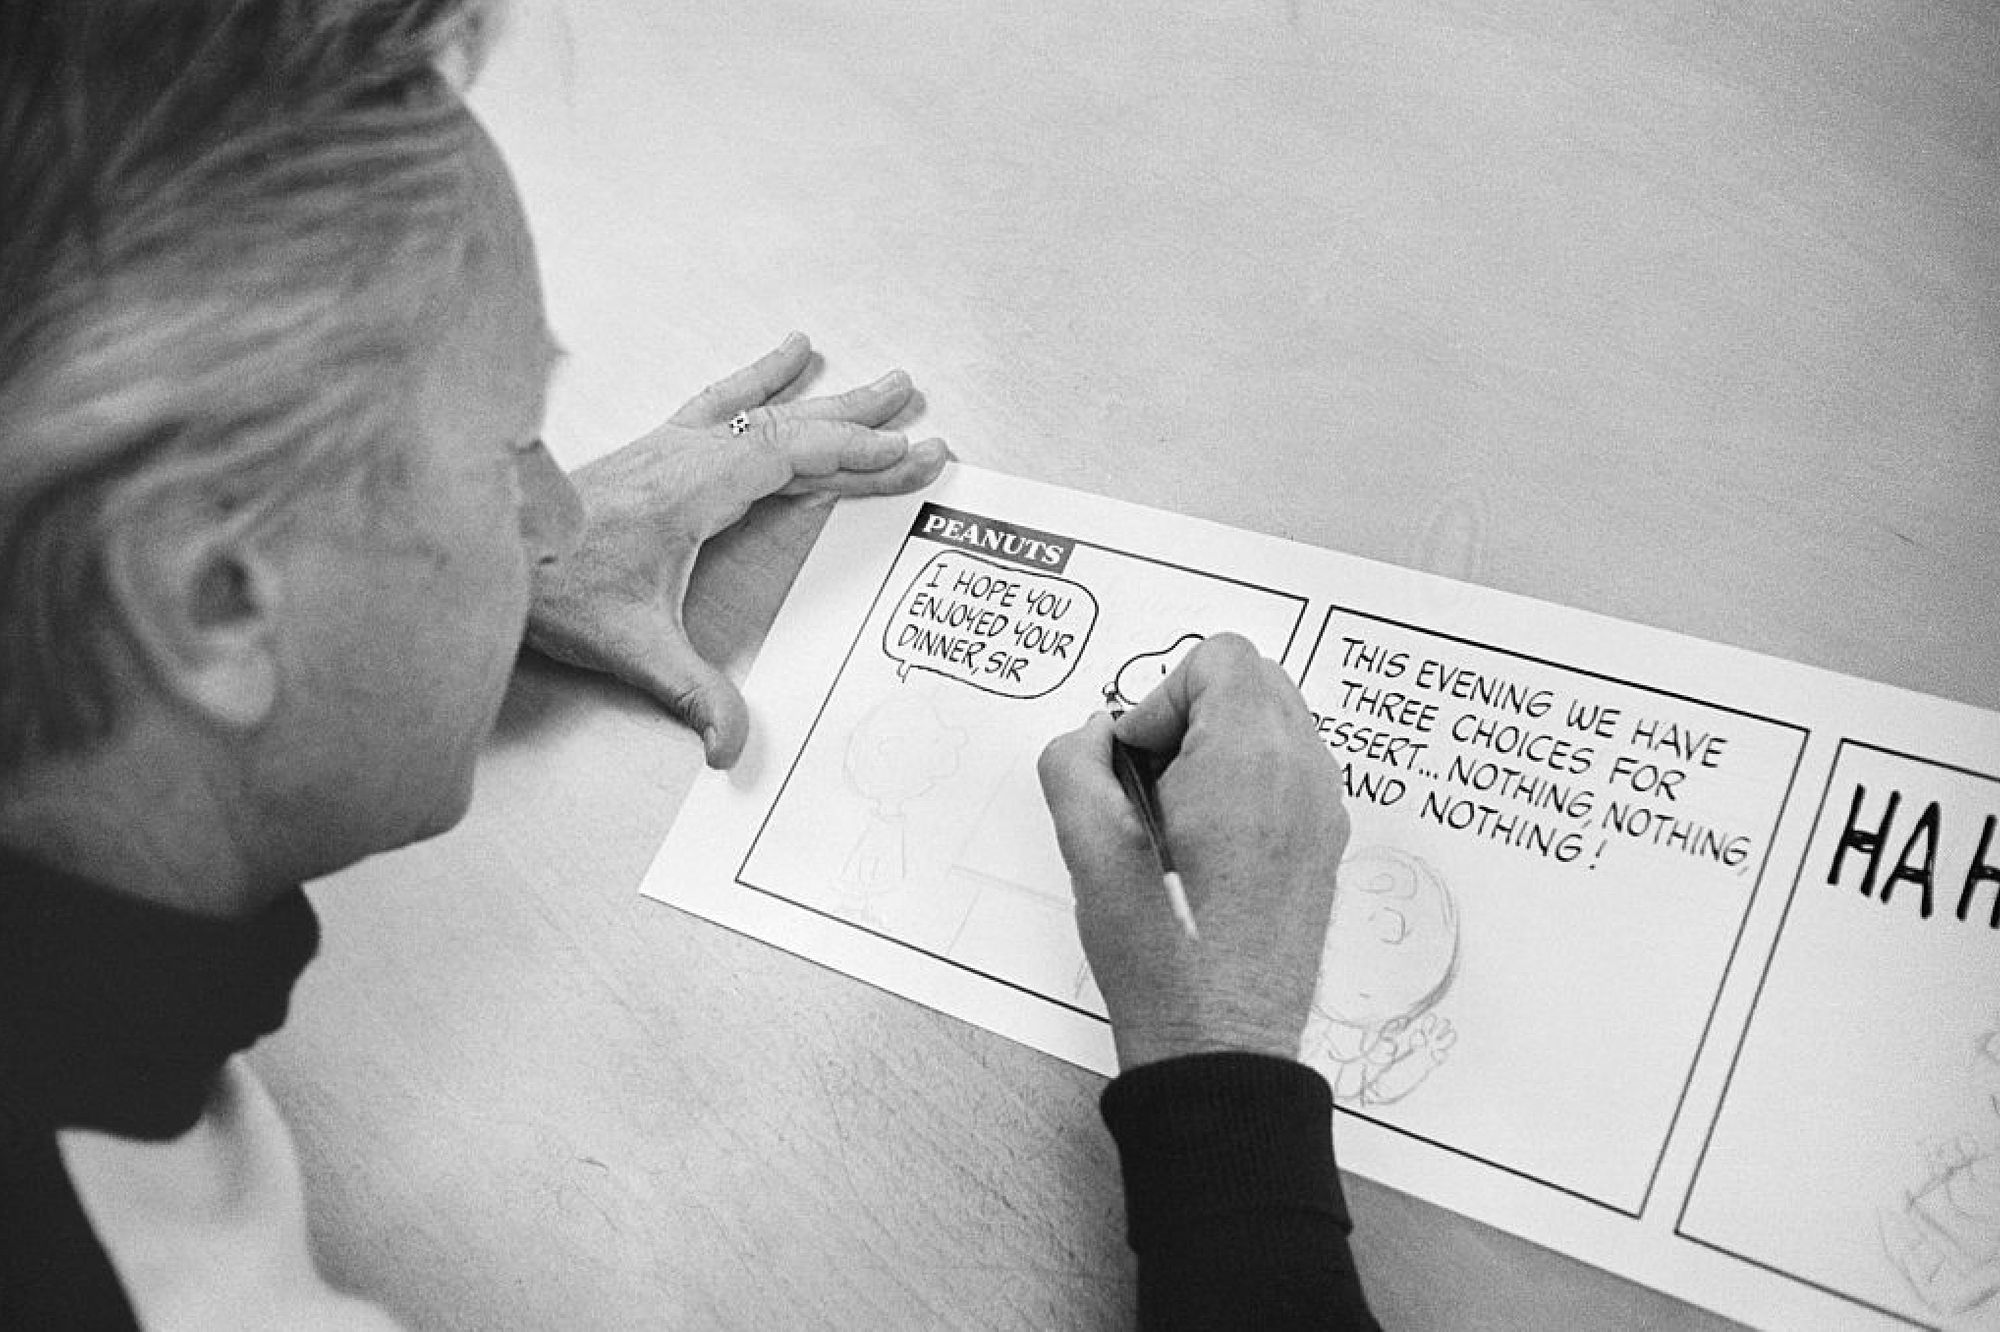 PEANUTS
I HOPE YOU
ENJOYED YOUR
DINNER, SIR
THIS EVENING WE HAVE
THREE CHOICES FOR
DESSERT... NOTHING, NOTHING,
AND NOTHING!
HA